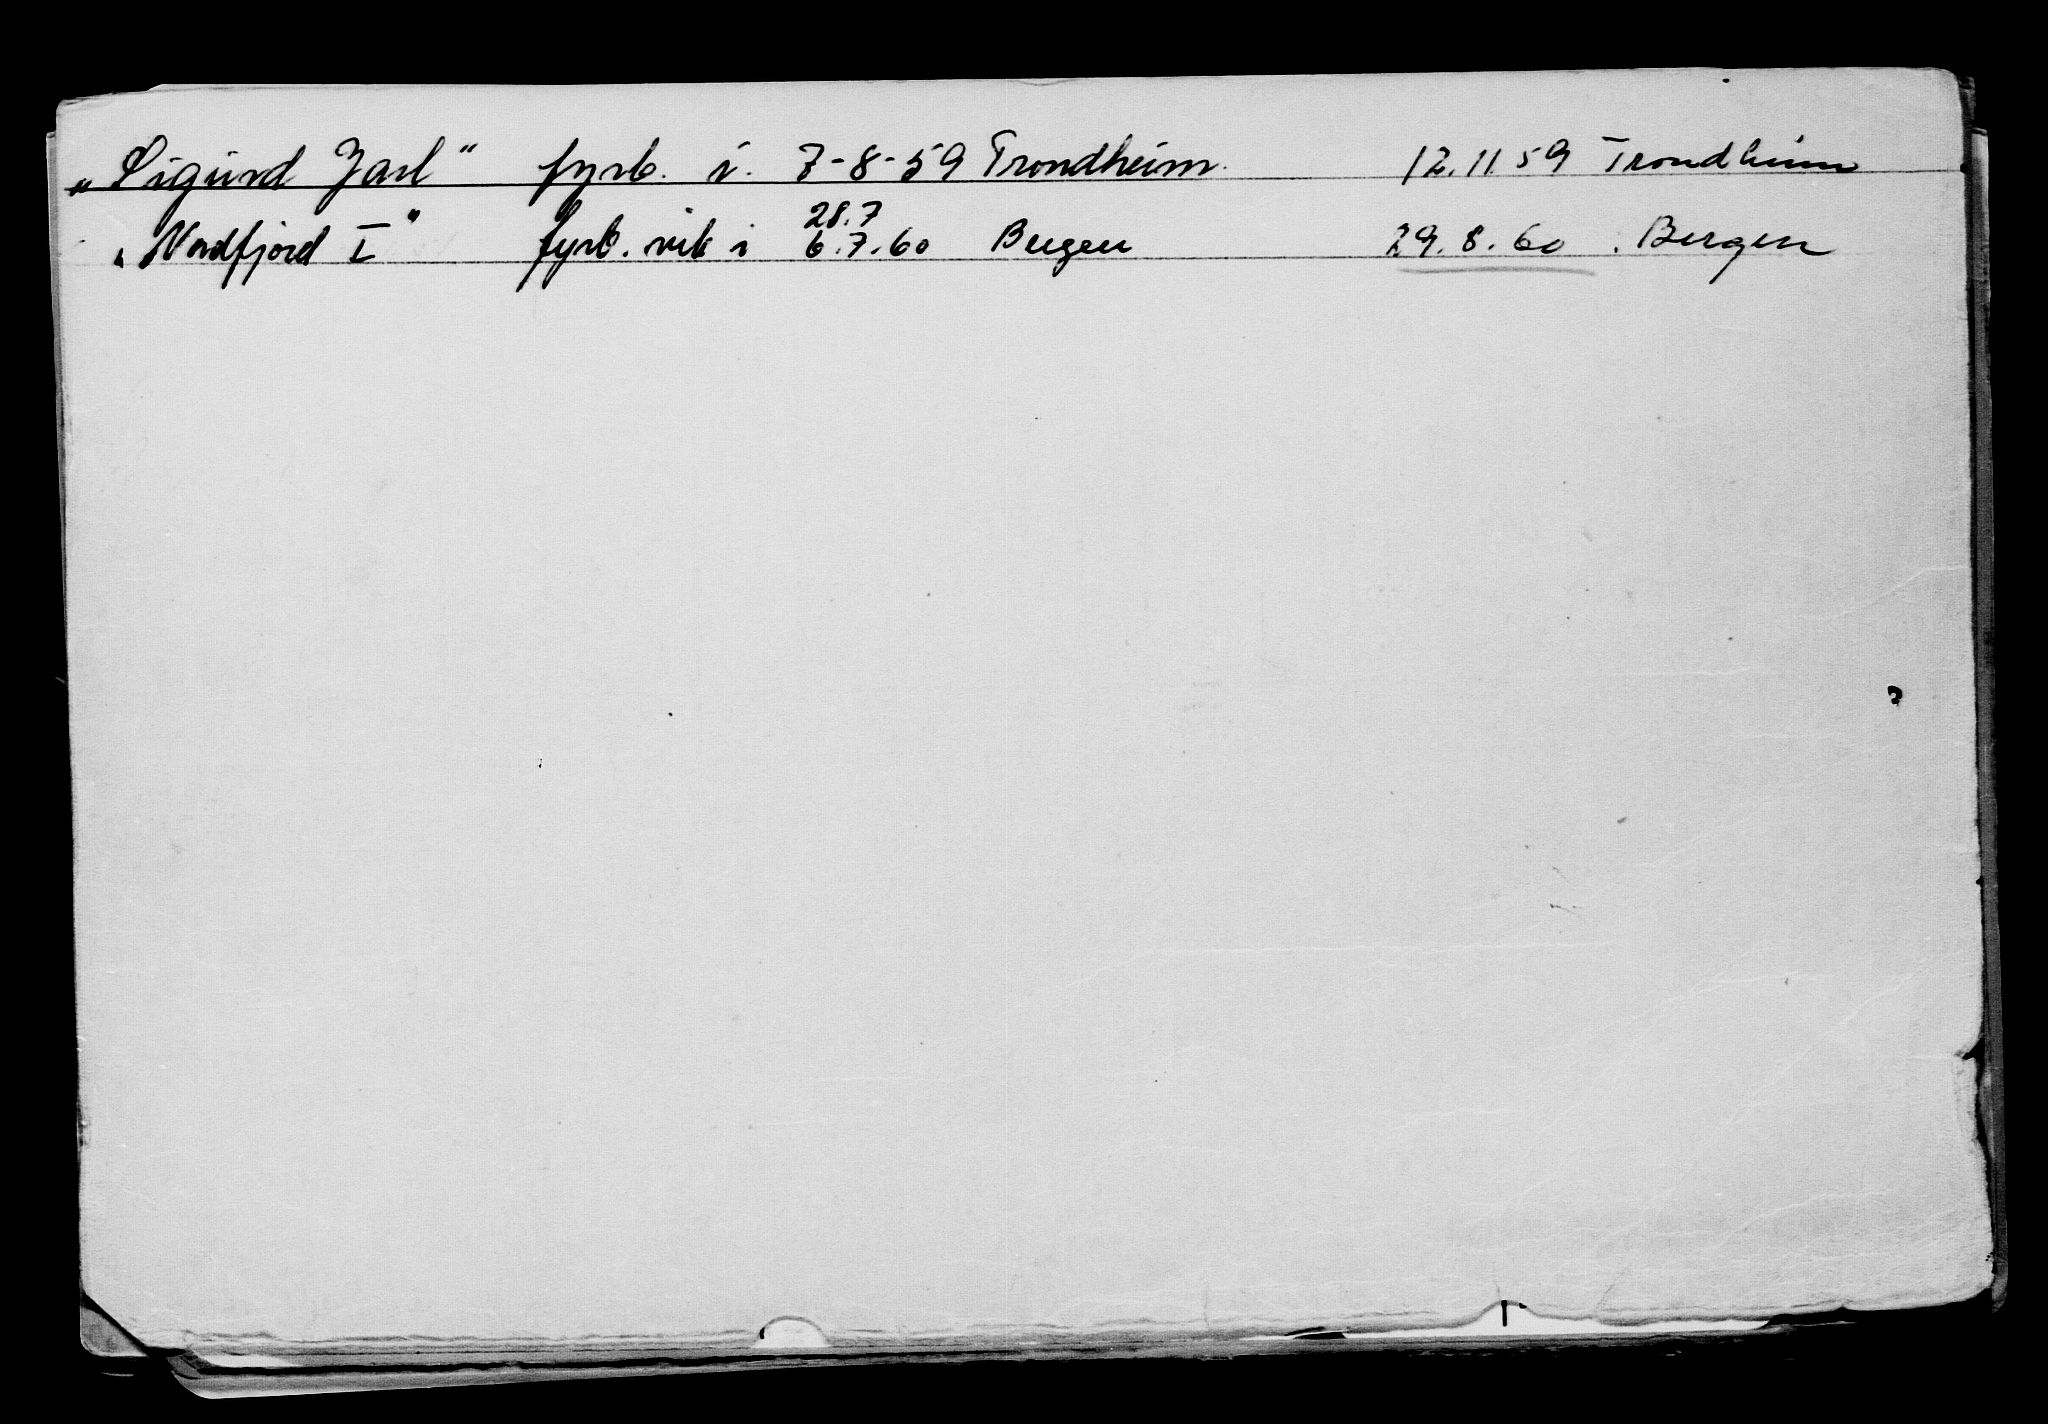 „Sigurd Jarl“ fyrb. i. 7-8-59 Trondheim. 12.11 59 Trondheim
28.7
„Nordfjord I“ fyrb. vik i 6.7.60 Bergen 29.8.60. Bergen